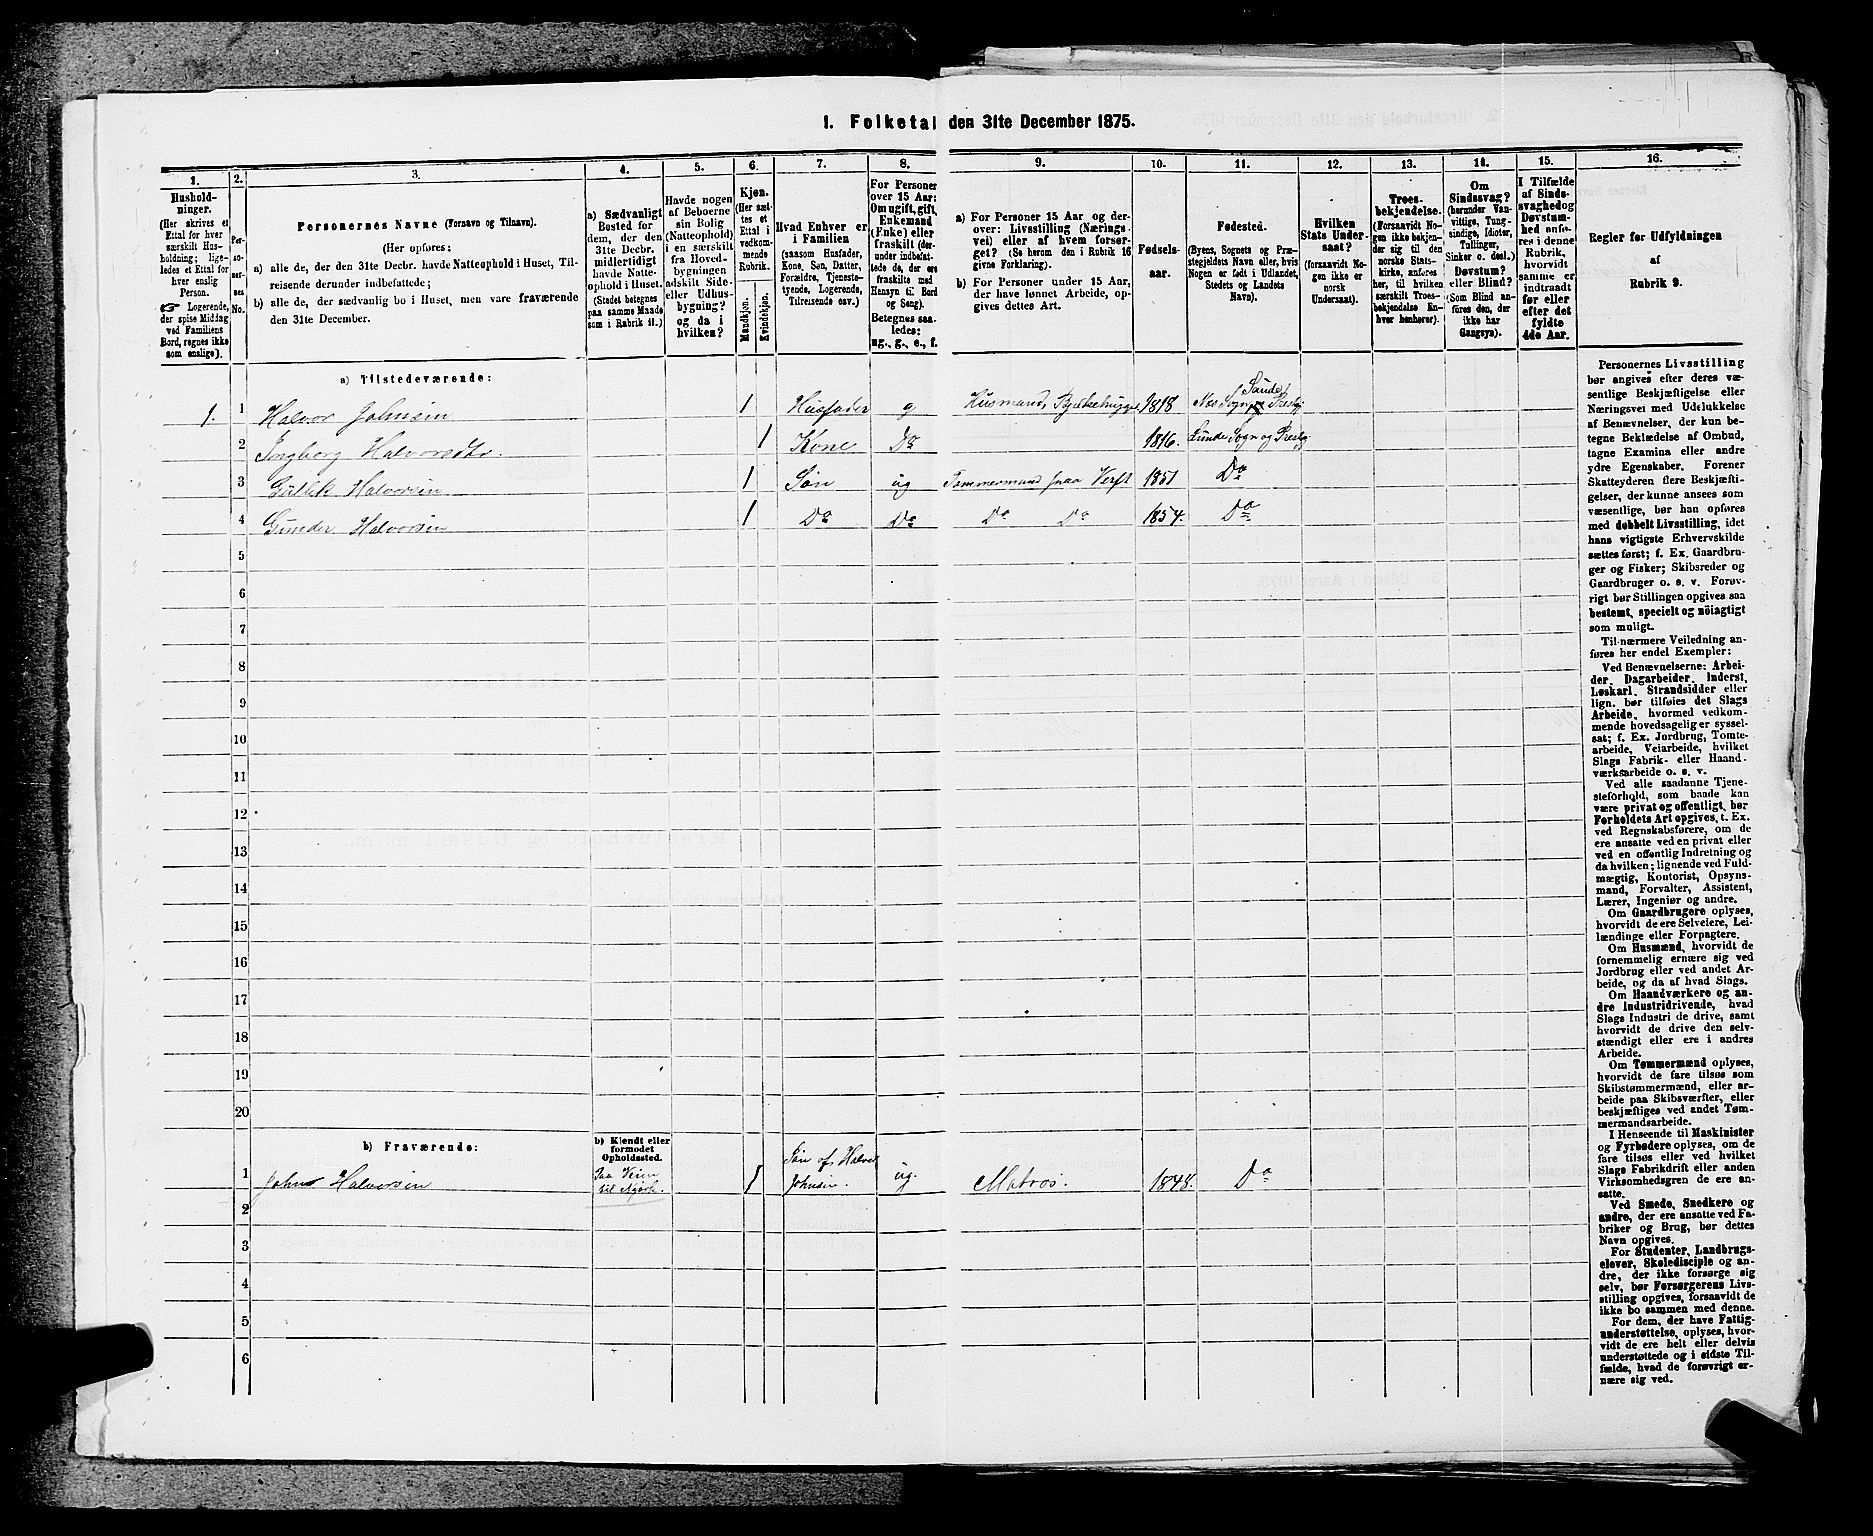 1. Folketal den 31te December 1875.
1.
Hushold-
ninger.
(Her skrives et
Ettal for hver
særskilt Hus-
holdning; lige-
ledes et Ettal for
hver enslig
Person.
☞ Logerende,
der spise Middag
ved Familiens
Bord, regnes ikke
som enslige).
2.
Per-
so-
ner-
nes
No.
3.
Personernes Navne (Fornavn og Tilnavn).
(Her opføres:
a) alle de, der den 31te Decbr. havde Natteophold i Huset, Til-
reisende derunder indbefattede;
b) alle de, der sædvanlig bo i Huset, men vare fraværende
den 31te December.
4.
a) Sædvanligt
Bosted for
dem, der den
31te Decbr.
midlertidigt
havde Natte-
ophold i Huset.
(Stedet betegnes
paa samme Maade
som i Rubrik 11.)
5.
Havde nogen
af Beboerne
sin Bolig
(Natteophold)
i en særskilt
fra Hoved-
bygningen
adskilt Side-
eller Udhus-
bygning?
og da i
hvilken?
6.
Kjøn.
(Her sæt-
tes et
Ettal i
vedkom-
mende
Rubrik.
Mandkjøn.
Kvindekjøn.
7.
Hvad Enhver er
i Familien
(saasom Husfader,
Kone, Søn, Datter,
Forældre, Tjeneste-
tyende, Logerende,
Tilreisende osv.)
8.
For Personer
over 15 Aar:
Om ugift, gift,
Enkemand
(Enke) eller
fraskilt (der-
under indbefat-
tede de, der ere
fraskilte med
Hensyn til Bord
og Seng).
Betegnes saa-
ledes:
ug., g., e., f.
9.
a) For Personer 15 Aar og der-
over: Livsstilling (Nærings-
vei) eller af hvem forsør-
get? (Se herom den i Rubrik 16
givne Forklaring).
b) For Personer under 15 Aar,
der have lønnet Arbeide, op-
gives dettes Art.
10.
Fødsels-
aar.
11.
Fødested.
(Byens, Sognets og Præ-
stegjeldets Navn eller, hvis
Nogen er født i Udlandet,
Stedets og Landets
Navn).
12.
Hvilken
Stats Under-
saat?
(forsaavidt No-
gen ikke er
norsk
Undersaat).
13.
Troes-
bekjendelse.
(Forsaavidt No-
gen ikke bekjen-
der sig til den
norske Stats-
kirke, anføres
her, til hvilken
særskilt Troes-
bekjendelse En-
hver henhører).
14.
Om
Sindssvag?
(herunder Van-
vittige, Tung-
sindige, Idioter,
Tullinger,
Sinker o. desl.)
Døvstum?
eller Blind?
(Som Blind an-
føres den, der
ikke har
Gangsyn).
15.
I Tilfælde
af Sinds-
svaghed og
Døvstum-
hed anføres
i denne
Rubrik,
hvorvidt
samme er
indtraadt
før eller
efter det
fyldte
4de Aar.
16.
Regler for Udfyldningen
af
Rubrik 9.
a) Tilstedeværende:
1. 1 Halvor Johnsen 1 Husfader g Husmand, Bjelkehugger 1818 Nes Sogn, Saude Prestg
2 Ingborg Halvorsdtr. 1 Kone Do 1816. Lunde Sogn og Prestg
3 Gullik Halvorsen 1 Søn ug Tømmermand paa Verft 1851 Do
4 Gunder Halvorsen 1 Do Do Do Do 1854. Do
5
6
7
8
9
10
11
12
13
14
15
16
17
18
19
20
b) Fraværende:
b) Kjendt eller
formodet
Opholdssted.
1 John Halvorsen Paa Veien til 1 Søn af Halvor Johnsen. ug. Matros. 1848. Do
2
3
4
5
6
Personernes Livsstilling
bør angives efter deres væ-
sentlige Beskjæftigelse eller
Næringsvei med Udelukkelse
af Benævnelser, der kun be-
tegne Beklædelse af Ombud,
tagne Examina eller andre
ydre Egenskaber. Forener
Skatteyderen flere Beskjæfti-
gelser, der kunne ansees som
væsentlige, bør han opføres
med dobbelt Livsstilling, idet
hans vigtigste Erhvervskilde
sættes først; f. Ex. Gaardbru-
ger og Fisker; Skibsreder og
Gaardbruger o. s. v. Forøv-
rigt bør Stillingen opgives saa
bestemt, specielt og nöiagtigt
som muligt.
Til nærmere Veiledning an-
føres her endel Exempler:
Ved Benævnelserne: Arbei-
der, Dagarbeider, Inderst,
Løskarl, Strandsidder eller
lign. bør tilføies det Slags
Arbeide, hvormed vedkom-
mende hovedsagelig er syssel-
sat; f. Ex. Jordbrug, Tomte-
arbeide, Veiarbeide, hvilket
Slags Fabrik- eller Haand-
værksarbeide o. s. v.
Ved alle saadanne Tjene-
steforhold, som baade kan
være privat og offentligt, bør
Forholdets Art opgives, t. Ex.
ved Regnskabsførere, om de
ere ansatte ved en privat eller
ved en offentlig Indretning og
da hvilken; lignende ved Fuld-
mægtig, Kontorist, Opsyns-
mand, Forvalter, Assistent,
Lærer, Ingeniør og andre.
Om Gaardbrugere oplyses,
hvorvidt de ere Selveiere, Lei-
lændinge eller Forpagtere.
Om Husmænd, hvorvidt de
fornemmelig ernære sig ved
Jordbrug eller ved andet Ar-
beide, og da af hvad Slags.
Om Haandværkere og an-
dre Industridrivende, hvad
Slags Industri de drive, samt
hvorvidt de drive den selv-
stændigt eller ere i andres
Arbeide.
Om Tømmermænd oplyses,
hvorvidt de fare tilsøs som
Skibstømmermænd, eller ar-
beide paa Skibsværfter, eller
beskjæftiges ved andet Tøm-
mermandsarbeide.
I Henseende til Maskinister
og Fyrbødere oplyses, om de
fare tilsøs eller ved hvilket
Slags Fabrikdrift eller anden
Virksomhedsgren de ere an-
satte.
Ved Smede, Snedkere og
andre, der ere ansatte ved Fa-
briker og Brug, bør dettes
Navn opgives.
For Studenter, Landbrugs-
elever, Skoledisciple og an-
dre, der ikke forsørge sig
selv, bør Forsørgerens Livs-
stilling opgives, forsaavidt de
ikke bo sammen med denne.
For dem, der have Fattig-
understøttelse, oplyses, hvor-
vidt de ere helt eller delvis
understøttede og i sidste Til-
fælde, hvad de forøvrigt er-
nære sig ved.